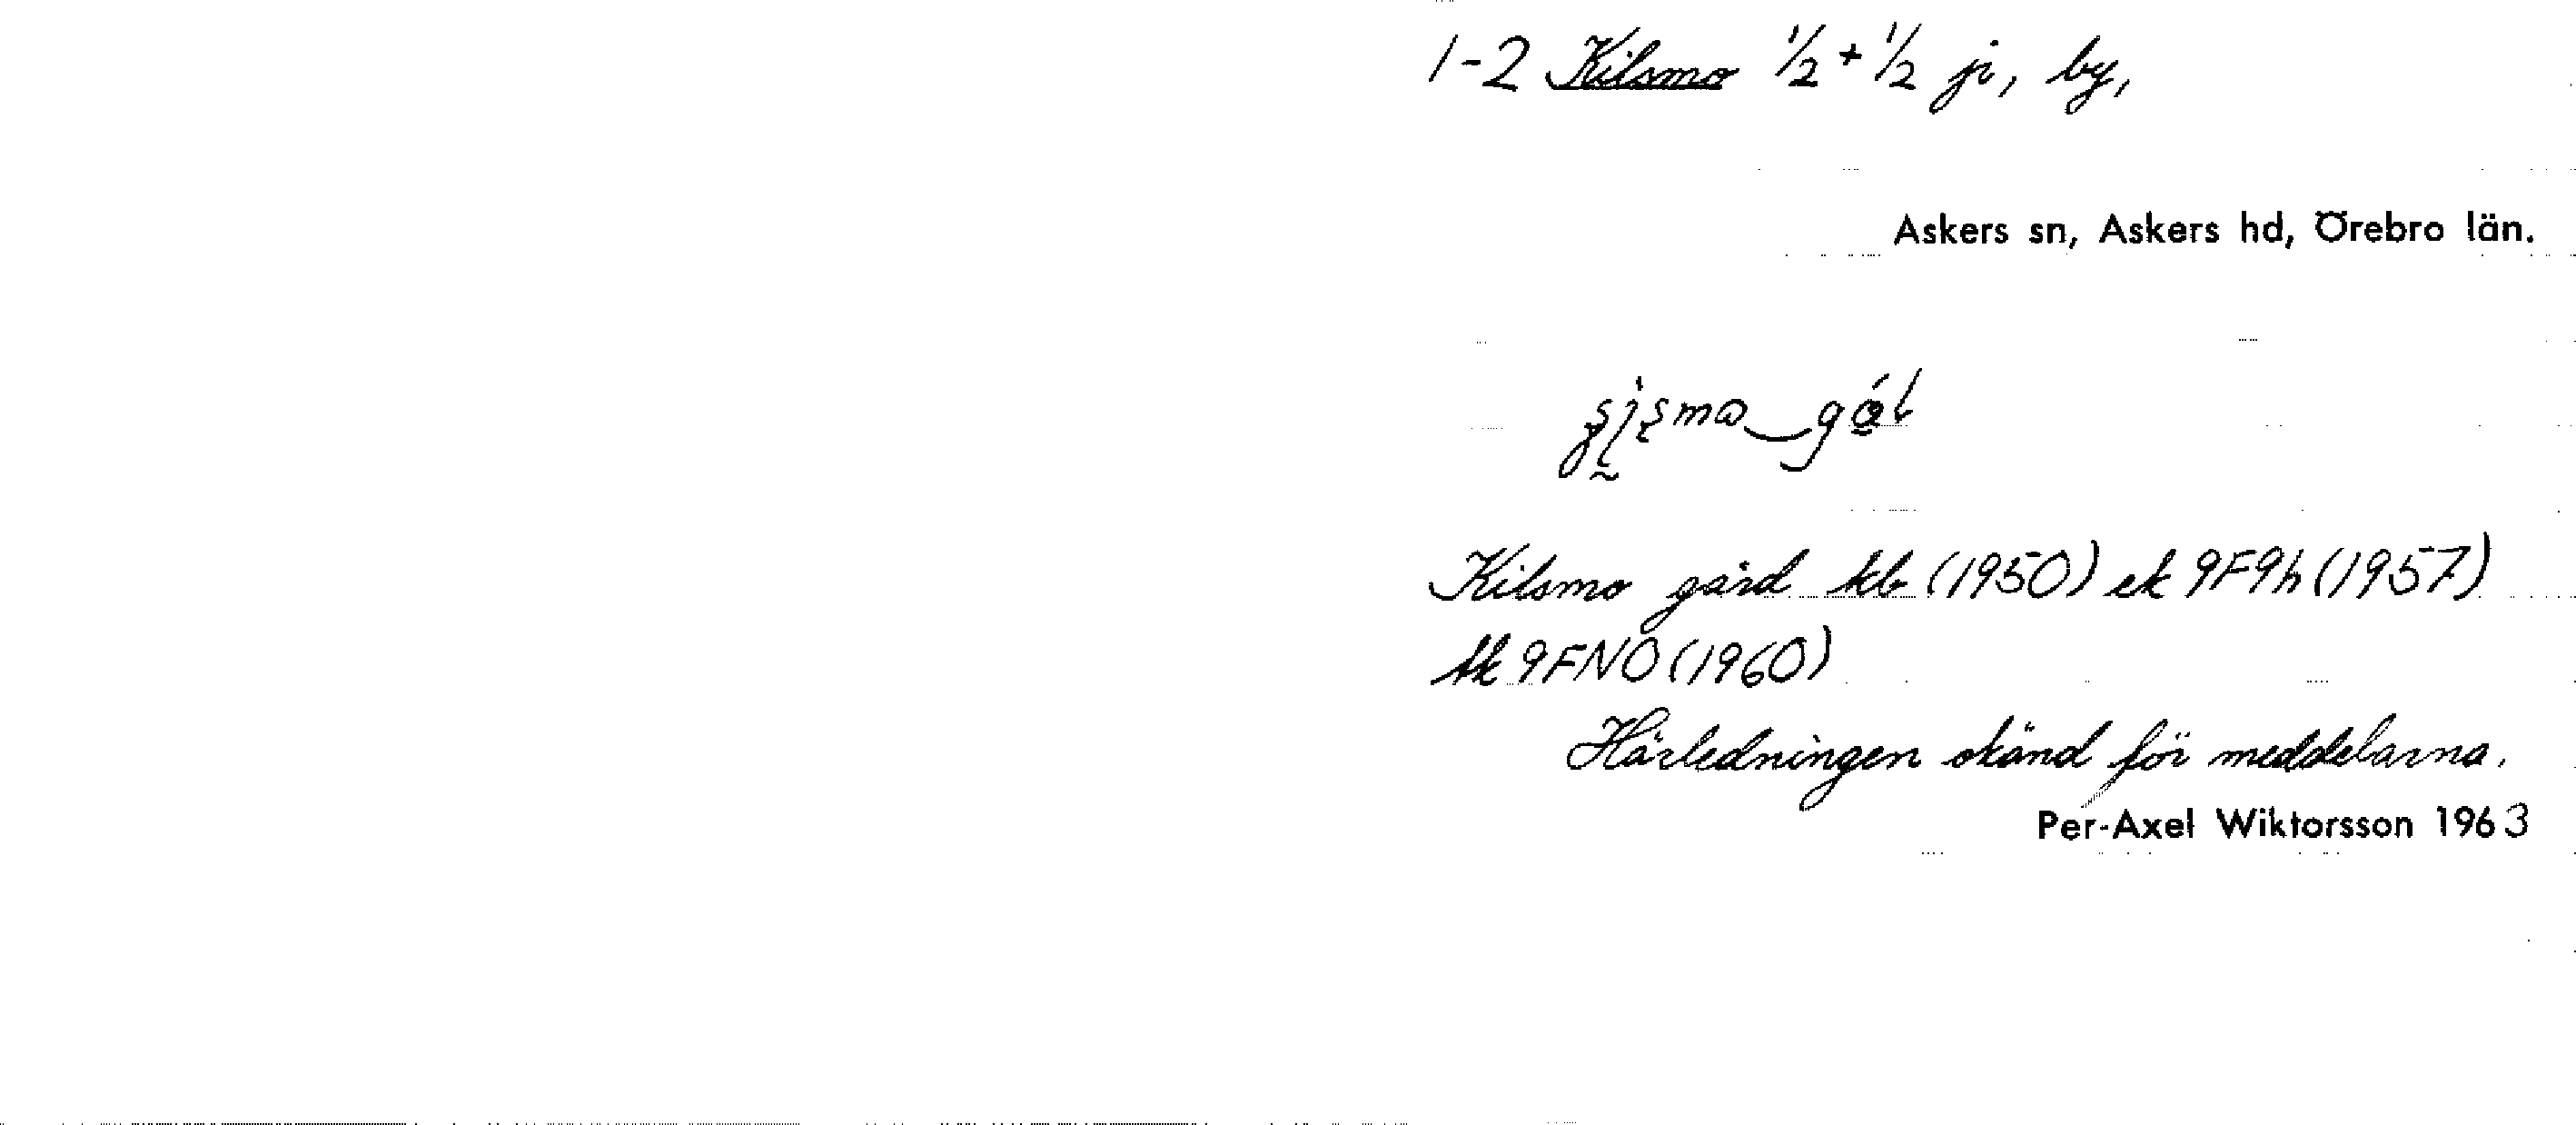 1-2 Kilsmo 1/2 + 1/2 jr, by,
Askers sn, Askers hd, Örebro län.
Kilsmo gård kb (1950) ek 9F9h (1957)
tk 9FNO (1960)
Härledningen okänd för meddelarna.
Per-Axel Wiktorsson 1963